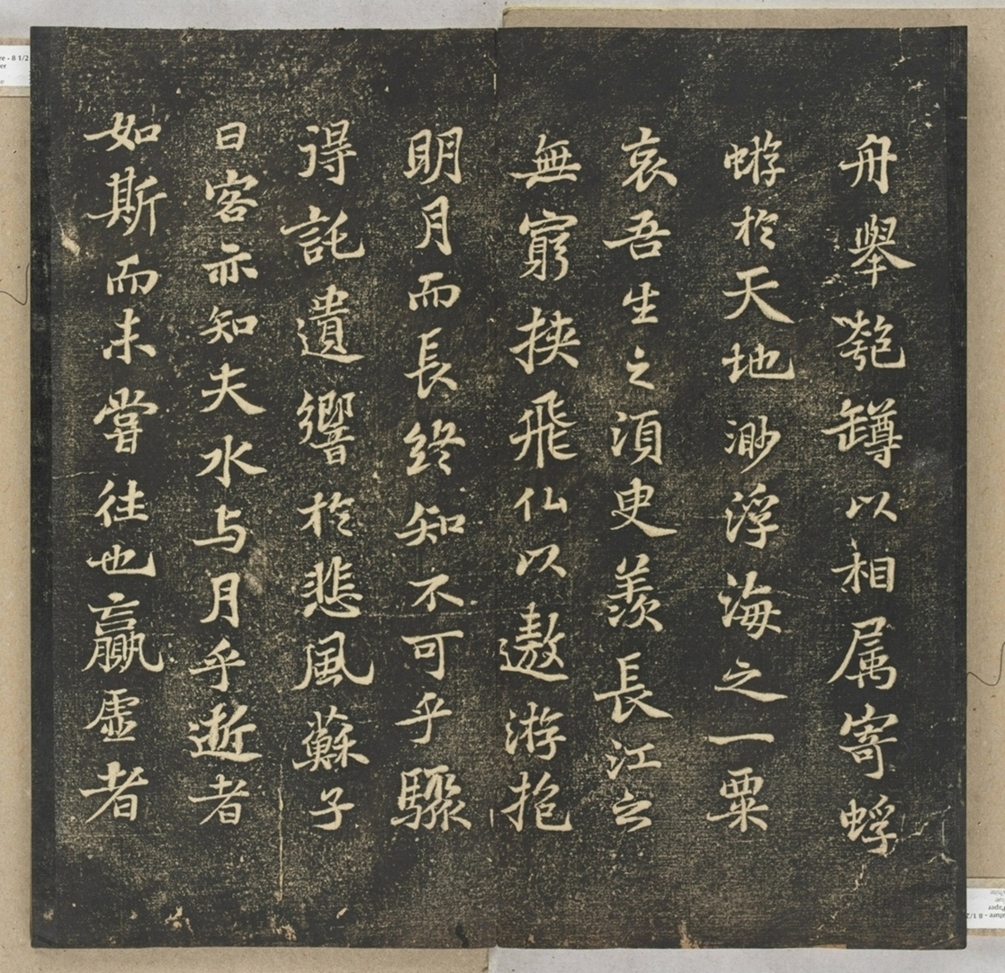 舟舉匏罇以相属寄蜉
蝣扵天地渺浮海之一粟
哀吾生之須臾羨長江之
無窮挟飛仙以遨游抱
明月而長终知不可乎驟
得託遺響扵悲風蘇子
曰客亦知夫水与月乎逝者
如斯而未嘗往也贏虚者